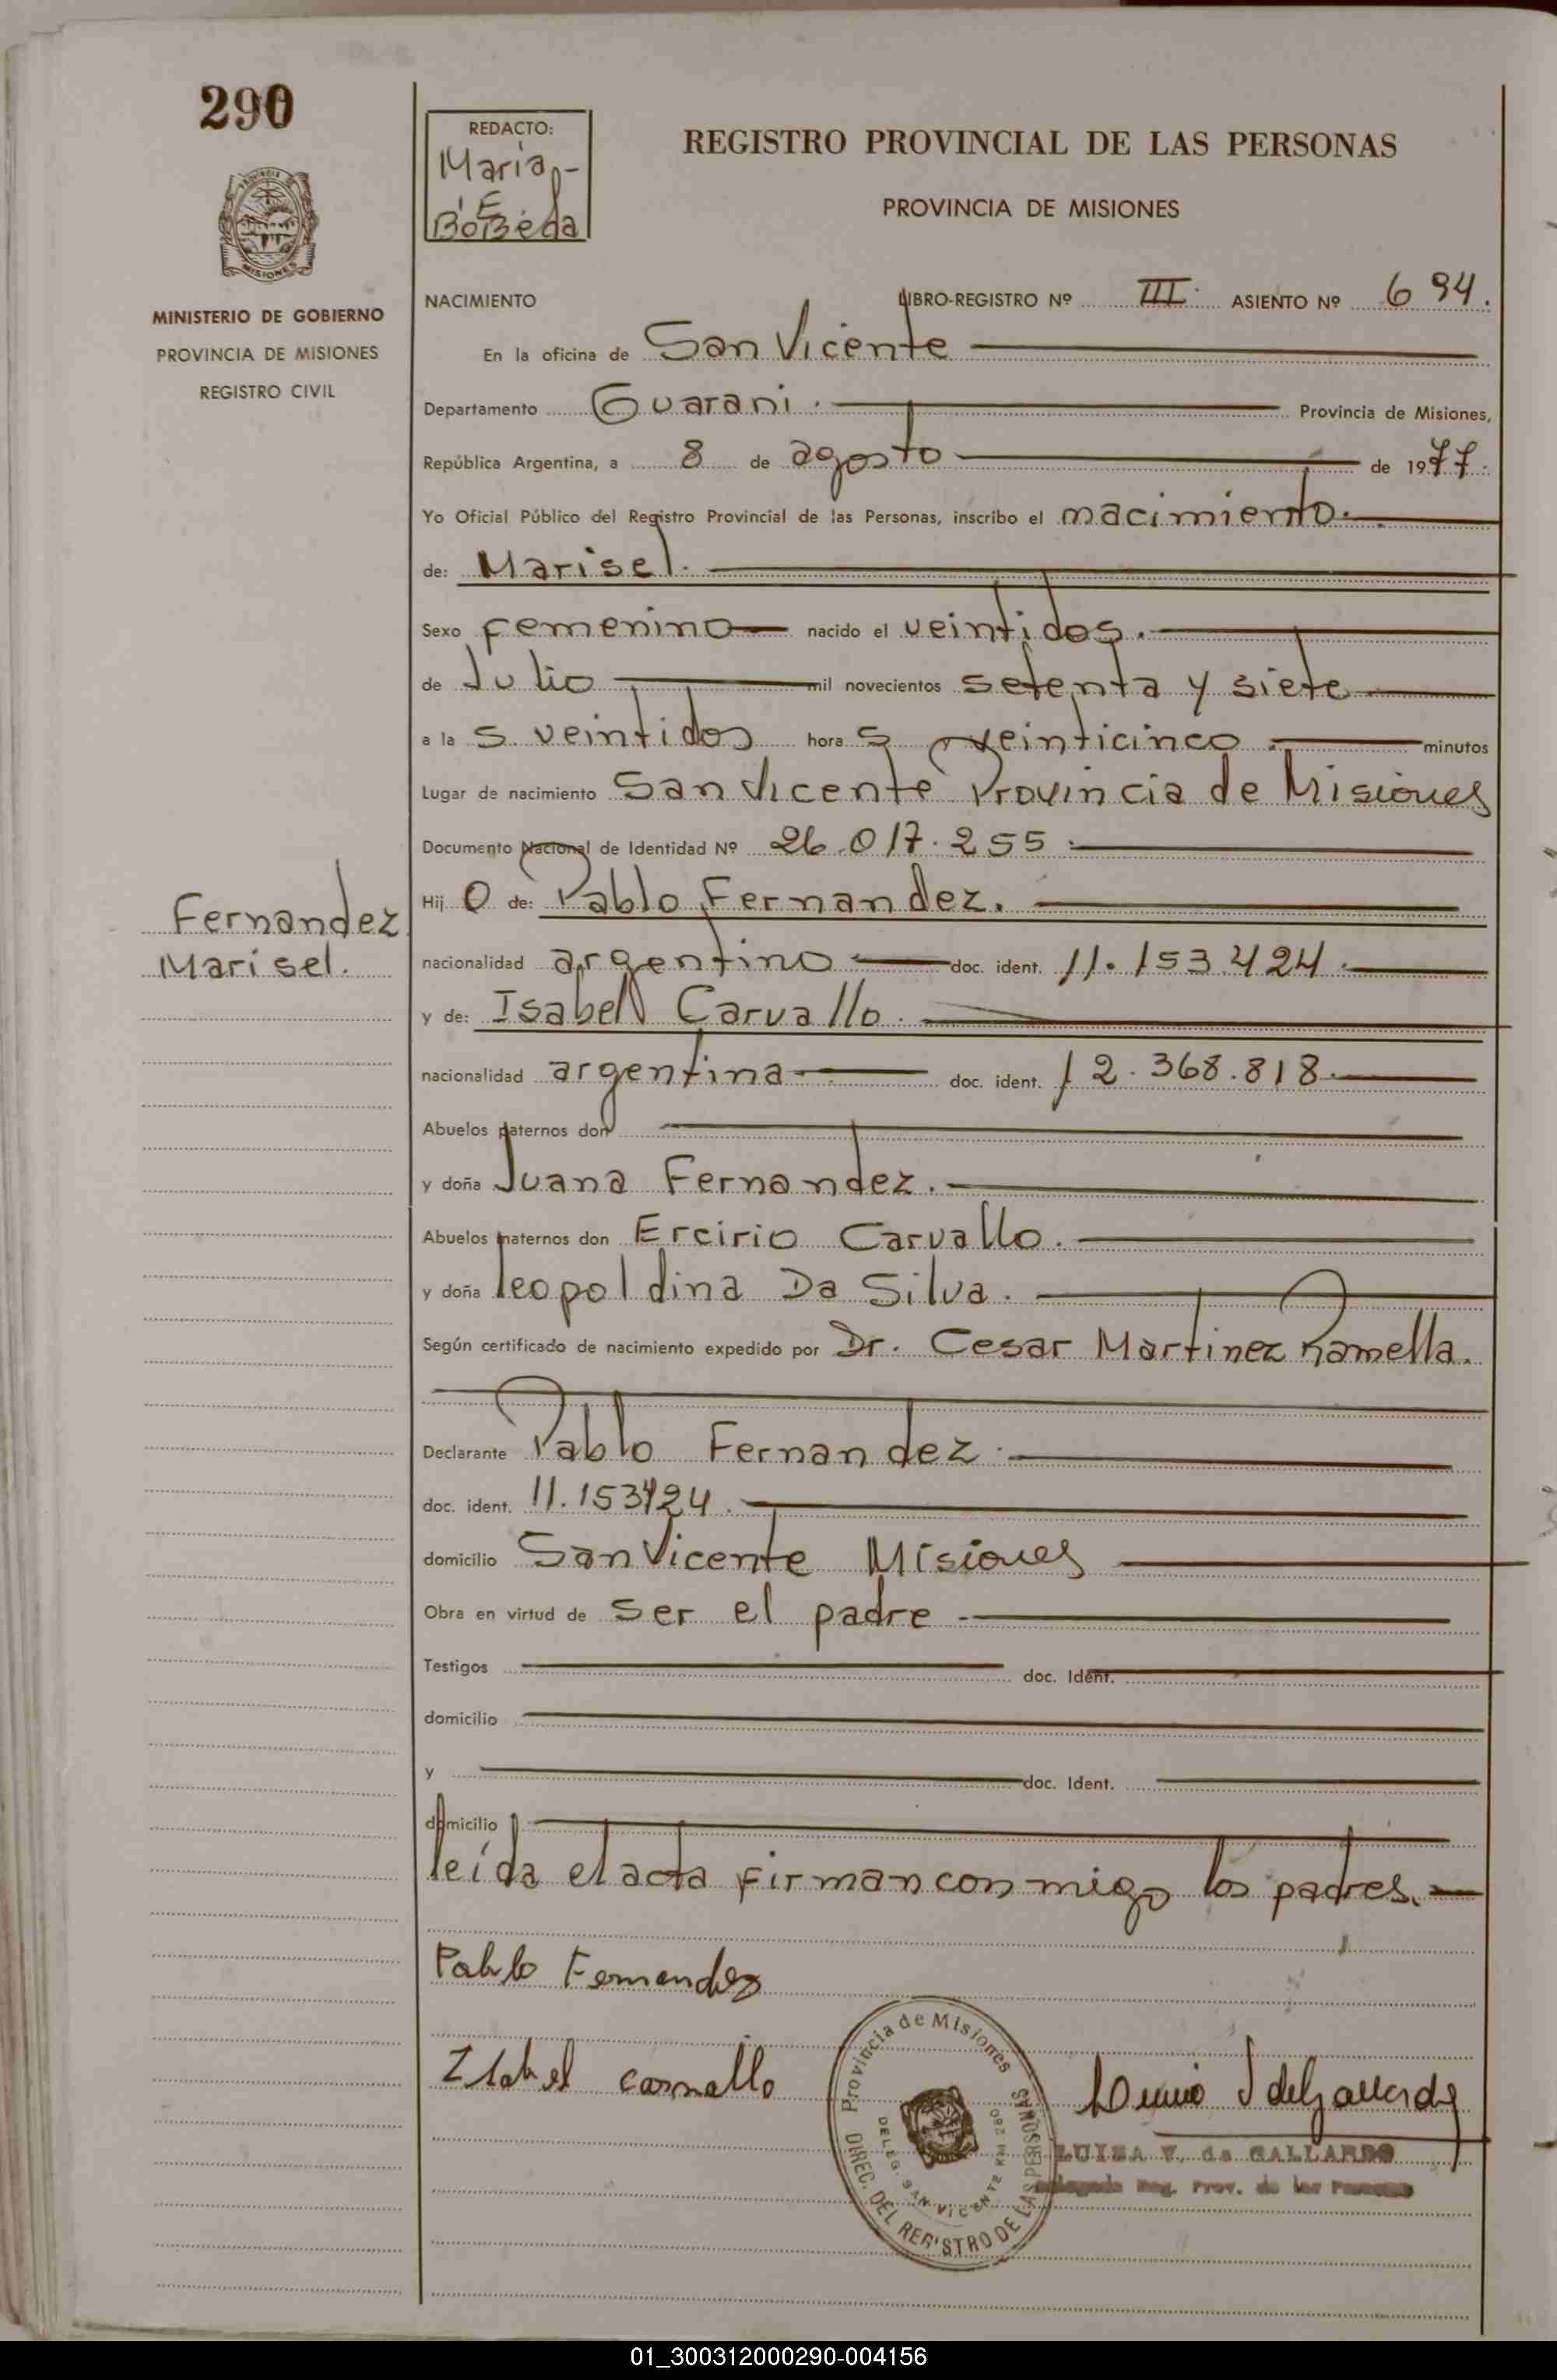 290
REDACTO:
Maria
E.
Bobeda
REGISTRO PROVINCIAL DE LAS PERSONAS
PROVINCIA DE MISIONES
MISIONES
MINISTERIO DE GOBIERNO
PROVINCIA DE MISIONES
REGISTRO CIVIL
NACIMIENTO LIBRO-REGISTRO Nº III. ASIENTO Nº 694.
En la oficina de San Vicente
Departamento Guarani. Provincia de Misiones,
República Argentina, a 8 de agosto de 1977.
Yo Oficial Público del Registro Provincial de las Personas, inscribo el nacimiento.
de: Marisel.
Sexo femenino nacido el veintidos.
de Julio mil novecientos setenta y siete
a la s veintidos hora s veinticinco. minutos
Lugar de nacimiento San Vicente Provincia de Misiones
Documento Nacional de Identidad Nº 26.017.255.
Hij o de: Pablo Fernandez.
Fernandez
Marisel.
nacionalidad argentino doc. ident. 11.153.424.
y de: Isabel Carvallo.
nacionalidad argentina doc. ident. 12.368.818.
Abuelos paternos don
y doña Juana Fernandez.
Abuelos maternos don Ercirio Carvallo.
y doña leopoldina Da Silva.
Según certificado de nacimiento expedido por Dr. Cesar Martinez Ramella.
Declarante Pablo Fernandez.
doc. ident. 11.153424.
domicilio San Vicente Misiones
Obra en virtud de ser el padre
Testigos doc. Ident.
domicilio
y doc. Ident.
domicilio
leída el acta firman conmigo los padres.
Pablo Fernandez
Isabel Carvallo
Provincia de Misiones
DIREC. DEL REGISTRO DE LAS PERSONAS
DELEG. SAN VICENTE KM 280
LUISA V. de GALLARDO
Delegada Reg. Prov. de las Personas
01_300312000290-004156